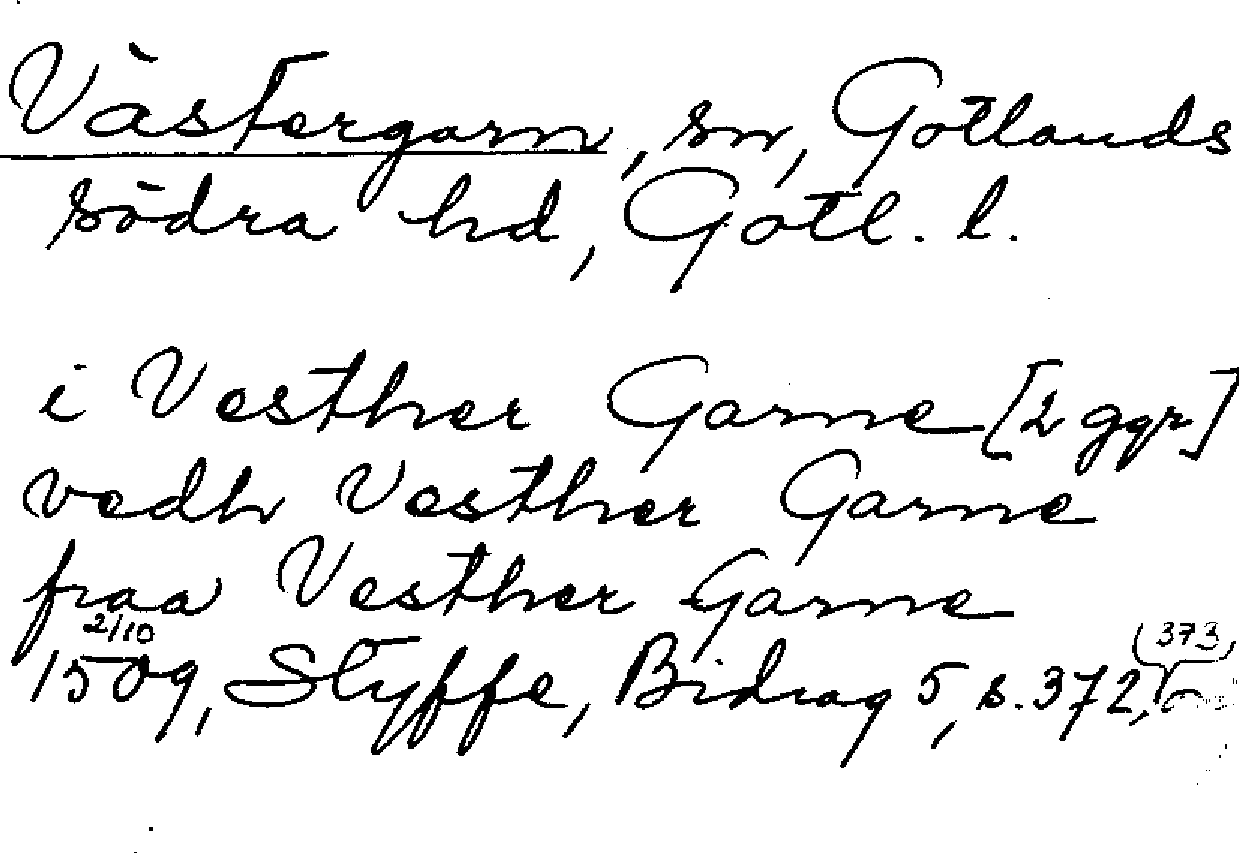 Västergarn, sn, Gotlands
södra hd, Gotl. l.
i Vesther Garne [2 ggr]
vedh Vesther Garne
fraa Vesther Garne
2/10
1509, Styffe, Bidrag 5, s. 372, 373